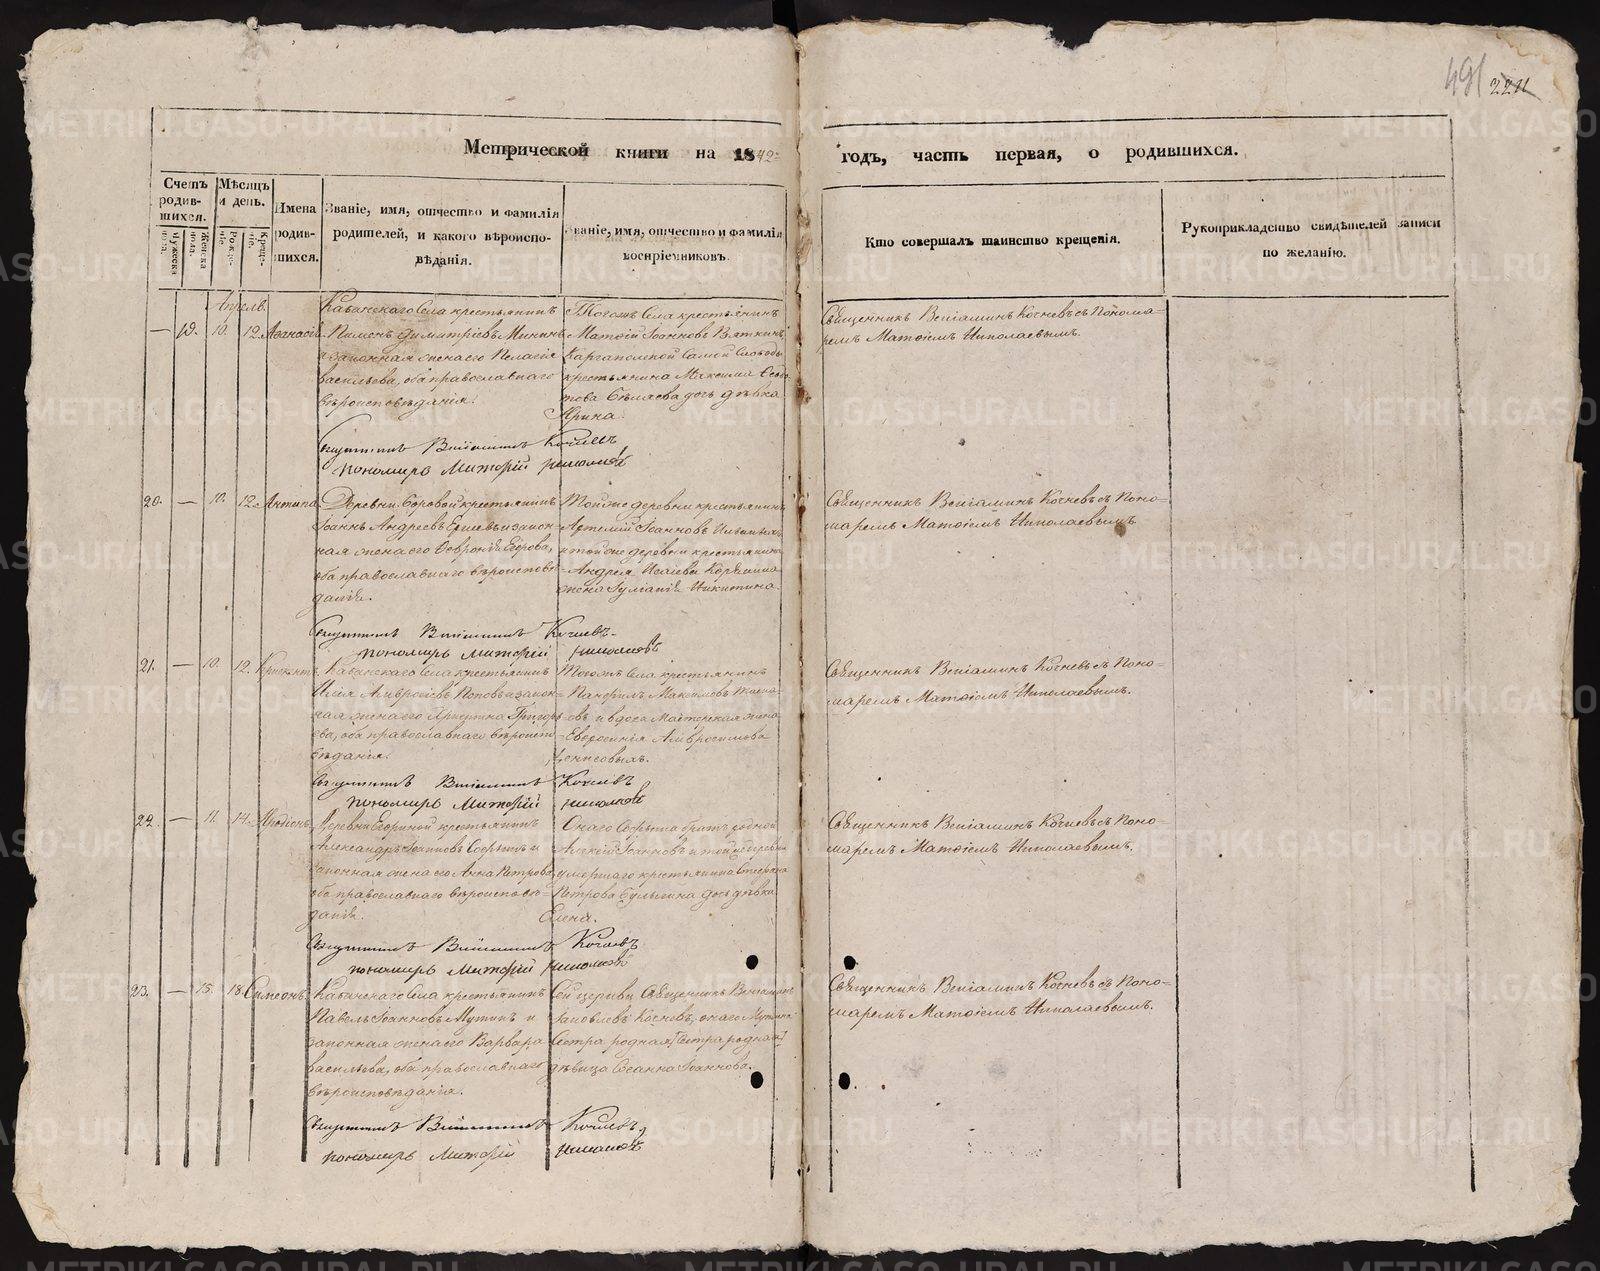 491 224
Метрической книги на 1842 годъ, часть первая, о родившихся.
Счетъ родив-шихся.
Мѣсяцъ и день.
Имена родив-шихся.
Званіе, имя, отчество и фамилія родителей, и какого вѣроиспо-вѣданія.
Званіе, имя, отчество и фамилія воспріемниковъ.
Кто совершалъ таинство крещенія.
Рукоприкладство свидѣтелей записи по желанію.
Мужеска пола.
Женска пола.
Рожде-ніе.
Креще-ніе.
Апрель.
— 19. 10. 12.
Кабанскаго Села крестьянинъ
Пименъ Димитріевъ Мининъ
и законная жена его Пелагія
Васильева, оба православнаго
вѣроисповѣданія.
Тогожъ Села крестьянинъ
Матѳій Іоанновъ Вяткинъ
Каргапольской Самой Слободы
крестьянина Максима
Бѣляева дочь дѣвка
Ирина.
Священникъ Веніаминъ Кочневъ съ Понома-
ремъ Матѳіемъ Николаевымъ.
Священникъ Веніаминъ Кочневъ
пономарь Матфій Николаевъ
20. — 10. 12. Антипа
Деревни Боровой крестьянинъ
Іоаннъ Андреевъ и закон-
ная жена его Февронія Егорова,
оба православнаго вѣроисповѣ-
данія.
Тойже деревни крестьянинъ
Артемій Іоанновъ
и тойже деревни крестьянина
Андрея Исаіева
жена Іуліанія Никитина
Священникъ Веніаминъ Кочневъ съ Поно-
маремъ Матѳіемъ Николаевымъ
Священникъ Веніаминъ Кочневъ
пономарь Матфій Николаевъ
21. — 10. 12.
Кабанскаго Села крестьянинъ
Илія Амвросіевъ Поповъ и закон-
ная жена его Христина Григорь-
ева, оба православнаго вѣроиспо-
вѣданія.
Тогожъ Села крестьянинъ
Панфилъ Максимовъ
жена
Евфросинія Амвросимова
Священникъ Веніаминъ Кочневъ съ Поно-
маремъ Матѳіемъ Николаевымъ.
Священникъ Веніаминъ Кочневъ
пономарь Матфій Николаевъ
22. — 11. 14. Иродіонъ
Деревни крестьянинъ
Александръ Іоанновъ и
законная жена его Анна Петрова
оба православнаго вѣроисповѣ-
данія.
Онаго братъ родной
Алексій Іоанновъ и тойже деревни
умершаго крестьянина Стефана
Петрова Булыгина дочь дѣвка
Елена.
Священникъ Веніаминъ Кочневъ съ Поно-
маремъ Матѳіемъ Николаевымъ.
Священникъ Веніаминъ Кочневъ
пономарь Матфій Николаевъ
23. — 15. 18. Симеонъ
Кабанскаго Села крестьянинъ
Павелъ Іоанновъ Мутинъ и
законная жена его Варвара
Васильева, оба православнаго
вѣроисповѣданія.
Сей церкви Священникъ Веніаминъ
Іаковлевъ Кочневъ, онаго Мутина
Сестра родная [Сестра родная]
дѣвица Іоаннова.
Священникъ Веніаминъ Кочневъ съ Поно-
маремъ Матѳіемъ Николаевымъ.
Священникъ Веніаминъ Кочневъ,
пономарь Матфій Николаевъ
METRIKI.GASO-URAL.RU